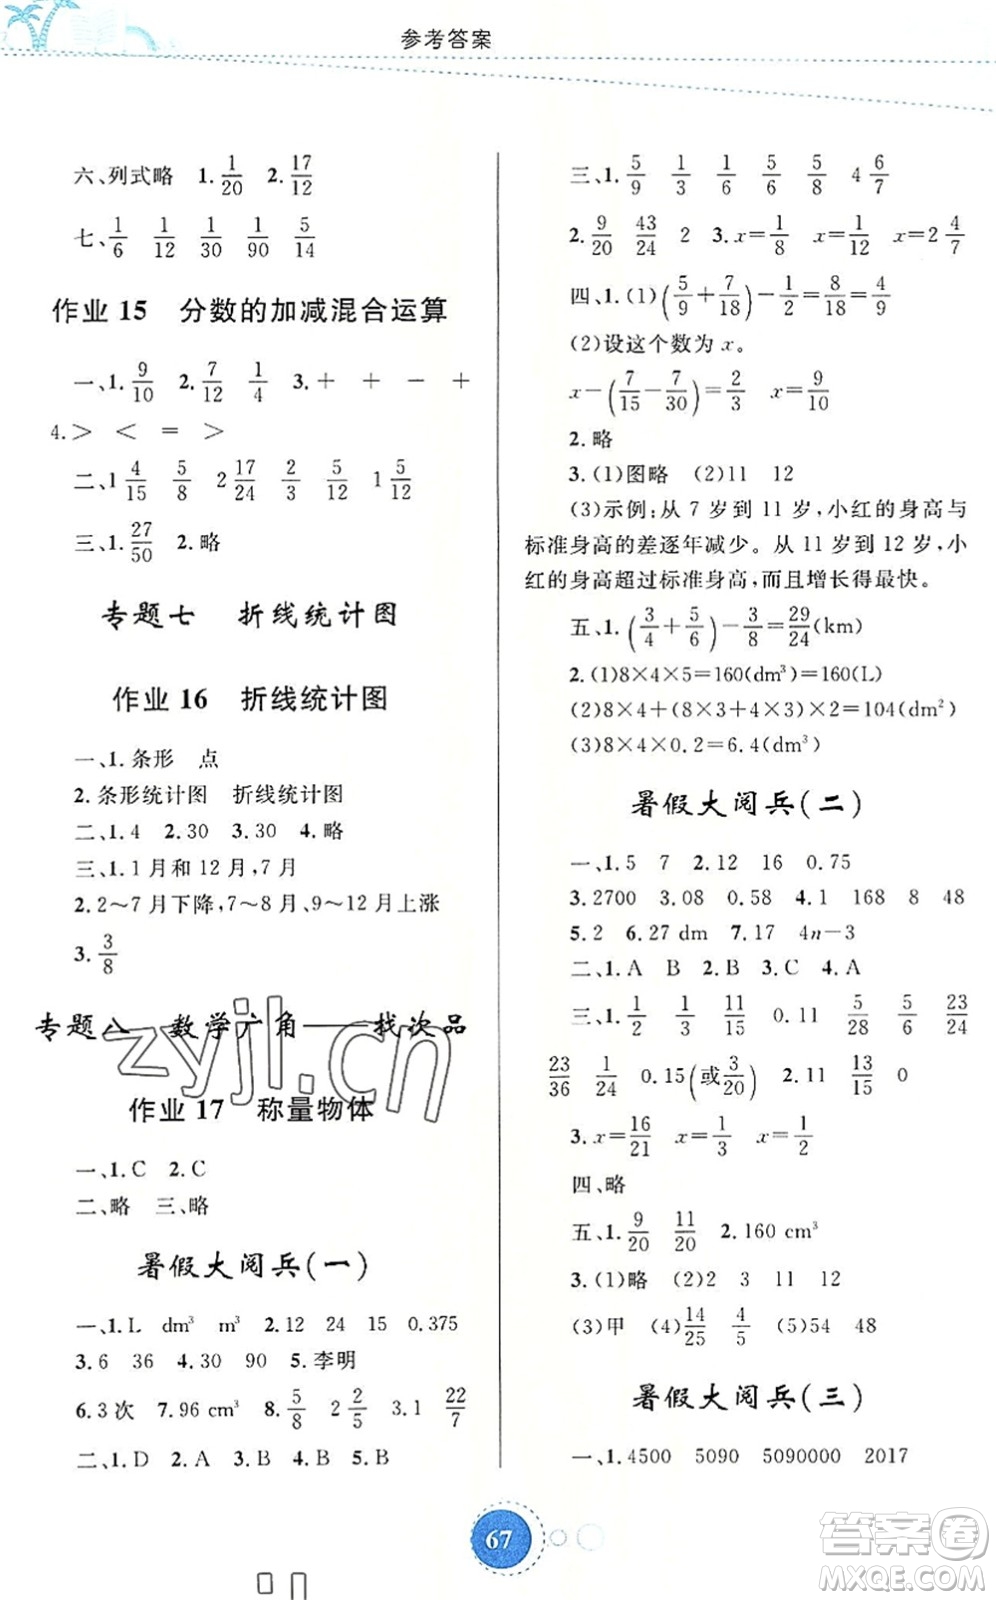 参考答案
六、列式略 1. 1/20 2. 17/12
七、1/6 1/12 1/30 1/90 5/14
作业 15 分数的加减混合运算
一、1. 9/10 2. 7/12 1/4 3.＋ ＋ － ＋
4.＞ ＜ ＝ ＞
二、1 4/15 5/8 2 17/24 2/3 5/12 1 5/12
三、1. 27/50 2.略
专题七 折线统计图
作业 16 折线统计图
一、1.条形 点
2.条形统计图 折线统计图
二、1.4 2.30 3.30 4.略
三、1.1月和12月,7月
2.2～7月下降,7～8月、9～12月上涨
3. 3/8
专题八 数学广角——找次品
作业 17 称量物体
一、1.C 2.C
二、略 三、略
暑假大阅兵(一)
一、1.L dm³ m³ 2.12 24 15 0.375
3.6 36 4.30 90 5.李明
6.3次 7.96 cm³ 8. 5/8 2 2/5 3.1 22/7
二、1.D 2.A 3.B 4.B 5.A
三、1. 5/9 1/3 1/6 5/6 5/8 4 6/7
2. 9/20 43/24 2 3.x=1/8 x=1/12 x=2 4/7
四、1.(1)(5/9+7/18)-1/2=8/18=4/9
(2)设这个数为x。
x-(7/15-7/30)=2/3 x=9/10
2.略
3.(1)图略 (2)11 12
(3)示例:从7岁到11岁,小红的身高与
标准身高的差逐年减少。从11岁到12岁,小
红的身高超过标准身高,而且增长得最快。
五、1.(3/4+5/6)-3/8=29/24(km)
2.(1)8×4×5=160(dm³)=160(L)
(2)8×4+(8×3+4×3)×2=104(dm²)
(3)8×4×0.2=6.4(dm³)
暑假大阅兵(二)
一、1.5 7 2.12 16 0.75
3.2700 3.08 0.58 4.1 168 8 48
5.2 6.27 dm 7.17 4n-3
二、1.A B 2.B 3.C 4.A
三、1. 1/2 2/3 11/15 0.11 5/28 5/6 23/24
23/36 1/24 0.15(或3/20) 2.11 13/15 0
3.x=16/21 x=1/3 x=1/2
四、略
五、1. 9/20 11/20 2.160 cm³
3.(1)略 (2)2 3 11 12
(3)甲 (4)14/25 4/5 (5)54 48
暑假大阅兵(三)
一、1.4500 5090 5090000 2017
67
zyjl.cn
答案圈
MXQE.COM